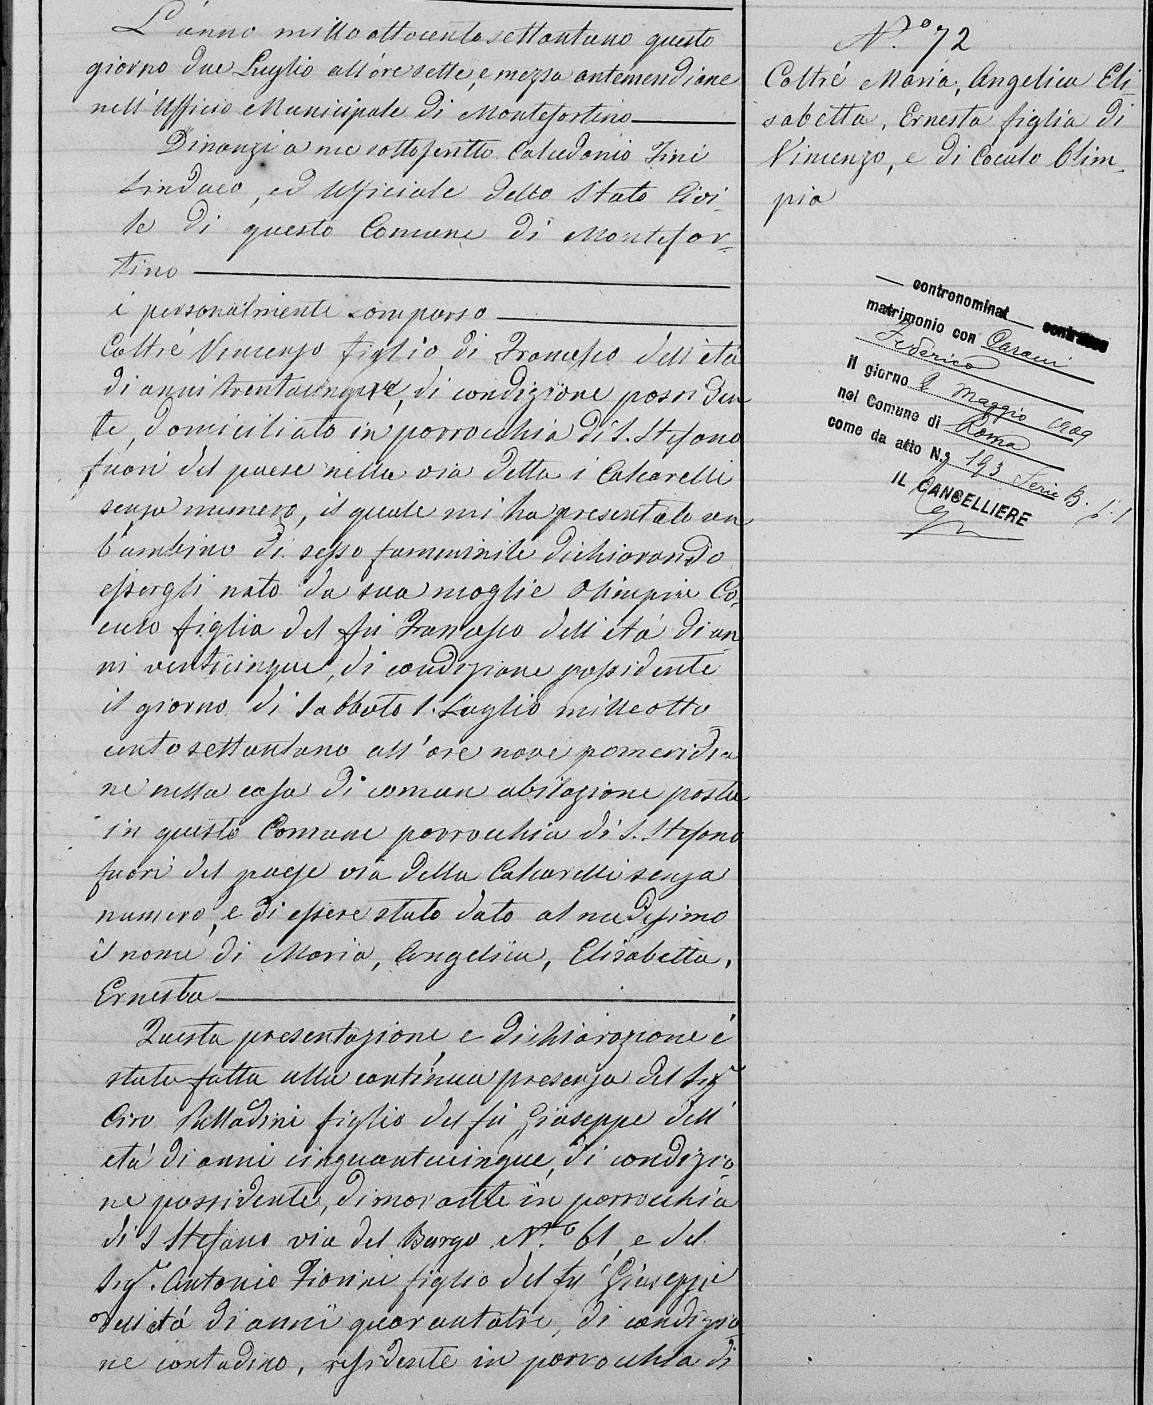 L'anno mille ottocento settantuno questo
giorno due Luglio all'ore sette, e mezza antemeridiane
nell'Ufficio Municipale di Montefortino
Dinanzi a me sottoscritto Calcedonio Fini
Sindaco, ed Ufficiale dello Stato Civi-
le di questo Comune di Montefor-
tino
è personalmente comparso
Coltrè Vincenzo figlio di Francesco dell'età
di anni trentacinque, di condizione possiden
te, domiciliato in parrocchia di S. Stefano
fuori del paese nella via detta i Calcarelli
senza numero, il quale mi ha presentato un
bambino di sesso femminile dichiarando
essergli nato da sua moglie Olimpia Co-
culo figlia del fù Francesco dell'età di an
ni venticinque, di condizione possidente
il giorno di Sabbato 1. Luglio mille otto
cento settantuno all'ore nove pomeridia
ne nella casa di comun abitazione posta
in questo Comune parrocchia di S. Stefano
fuori del paese via della Calcarelli senza
numero, e di essere stato dato al medesimo
il nome di Maria, Angelica, Elisabetta,
Ernesta
Questa presentazione e dichiarazione è
stata fatta alla continua presenza del Sigr
Ciro Palladini figlio del fù Giuseppe dell'
età di anni cinquantacinque, di condizio-
ne possidente, dimorante in parrocchia
di S Stefano via del Borgo N.o 61, e del
Sigr. Antonio Fiorini figlio del fù Giuseppe
dell'età di anni quarantatre, di condizio
ne contadino, residente in parrocchia di
N.o 72
Coltrè Maria, Angelica Eli-
sabetta, Ernesta figlia di
Vincenzo, e di Coculo Olim-
pia
contronominat
matrimonio con
Federico
il giorno 2 Maggio 1909
nel Comune di Roma
come da atto N. 193 Serie B. p. 1
IL CANCELLIERE